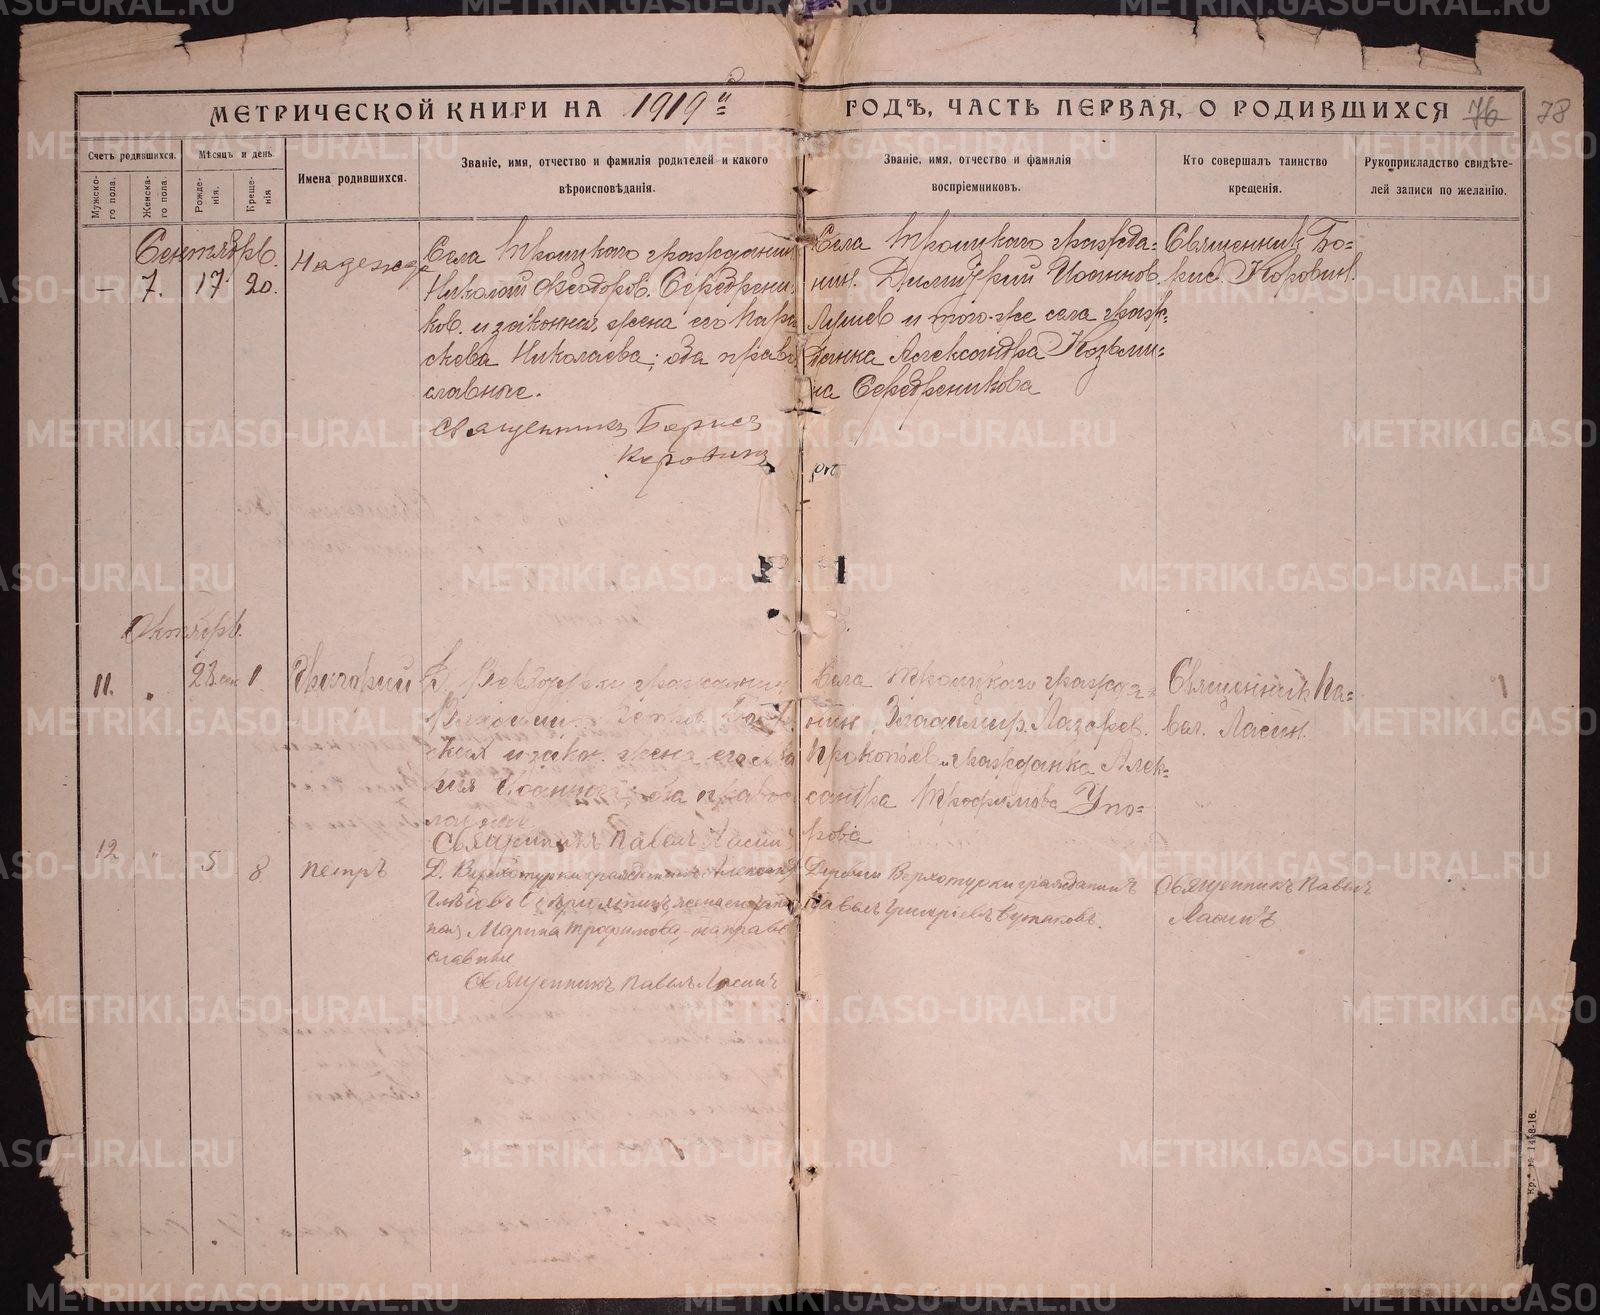 МЕТРИЧЕСКОЙ КНИГИ НА 1919 й ГОДЪ, ЧАСТЬ ПЕРВАЯ, О РОДИВШИХСЯ 76 78
Счетъ родившихся.
Мѣсяцъ и день.
Мужско-
го пола.
Женска-
го пола.
Рожде-
нія.
Креще-
нія
Имена родившихся.
Званіе, имя, отчество и фамилія родителей и какого
вѣроисповѣданія.
Званіе, имя, отчество и фамилія
воспріемниковъ.
Кто совершалъ таинство
крещенія.
Рукоприкладство свидѣте-
лей записи по желанію.
Сентябрь.
— 7. 17. 20.
Надежда
Села Троицкого гражданин
Николай Феодоров. Серебрени-
ков. и законная жена его Пара
скева Николаева; оба право
славные.
Священникъ Борисъ
Коровинъ
Села Троицкого гражда-
нин. Димитрий Иоаннов.
и того-же села граж-
данка Александра Козьми-
на Серебреникова
Священникъ Бо-
рис. Коровин.
Октябрь.
11. " 28 сен. 1
Д. гражданин
и закон. жена его
Иоаннова; оба право
славные
Священникъ Павелъ Ласинъ
Села Троицкого гражда-
нин Владимир. Лазарев.
Прокопьев и гражданка Алек-
сандра Трофимова
Священникъ Па-
вел. Ласин.
12. " 5 8
Петръ
Д. Верхотурки гражданинъ Александръ
жена его
Марина Трофимова, оба право
славные
Священникъ Павелъ Ласинъ
Деревни Верхотурки гражданинъ
Павелъ Григорьевъ
Священникъ Павелъ
Ласинъ
METRIKI.GASO-URAL.RU